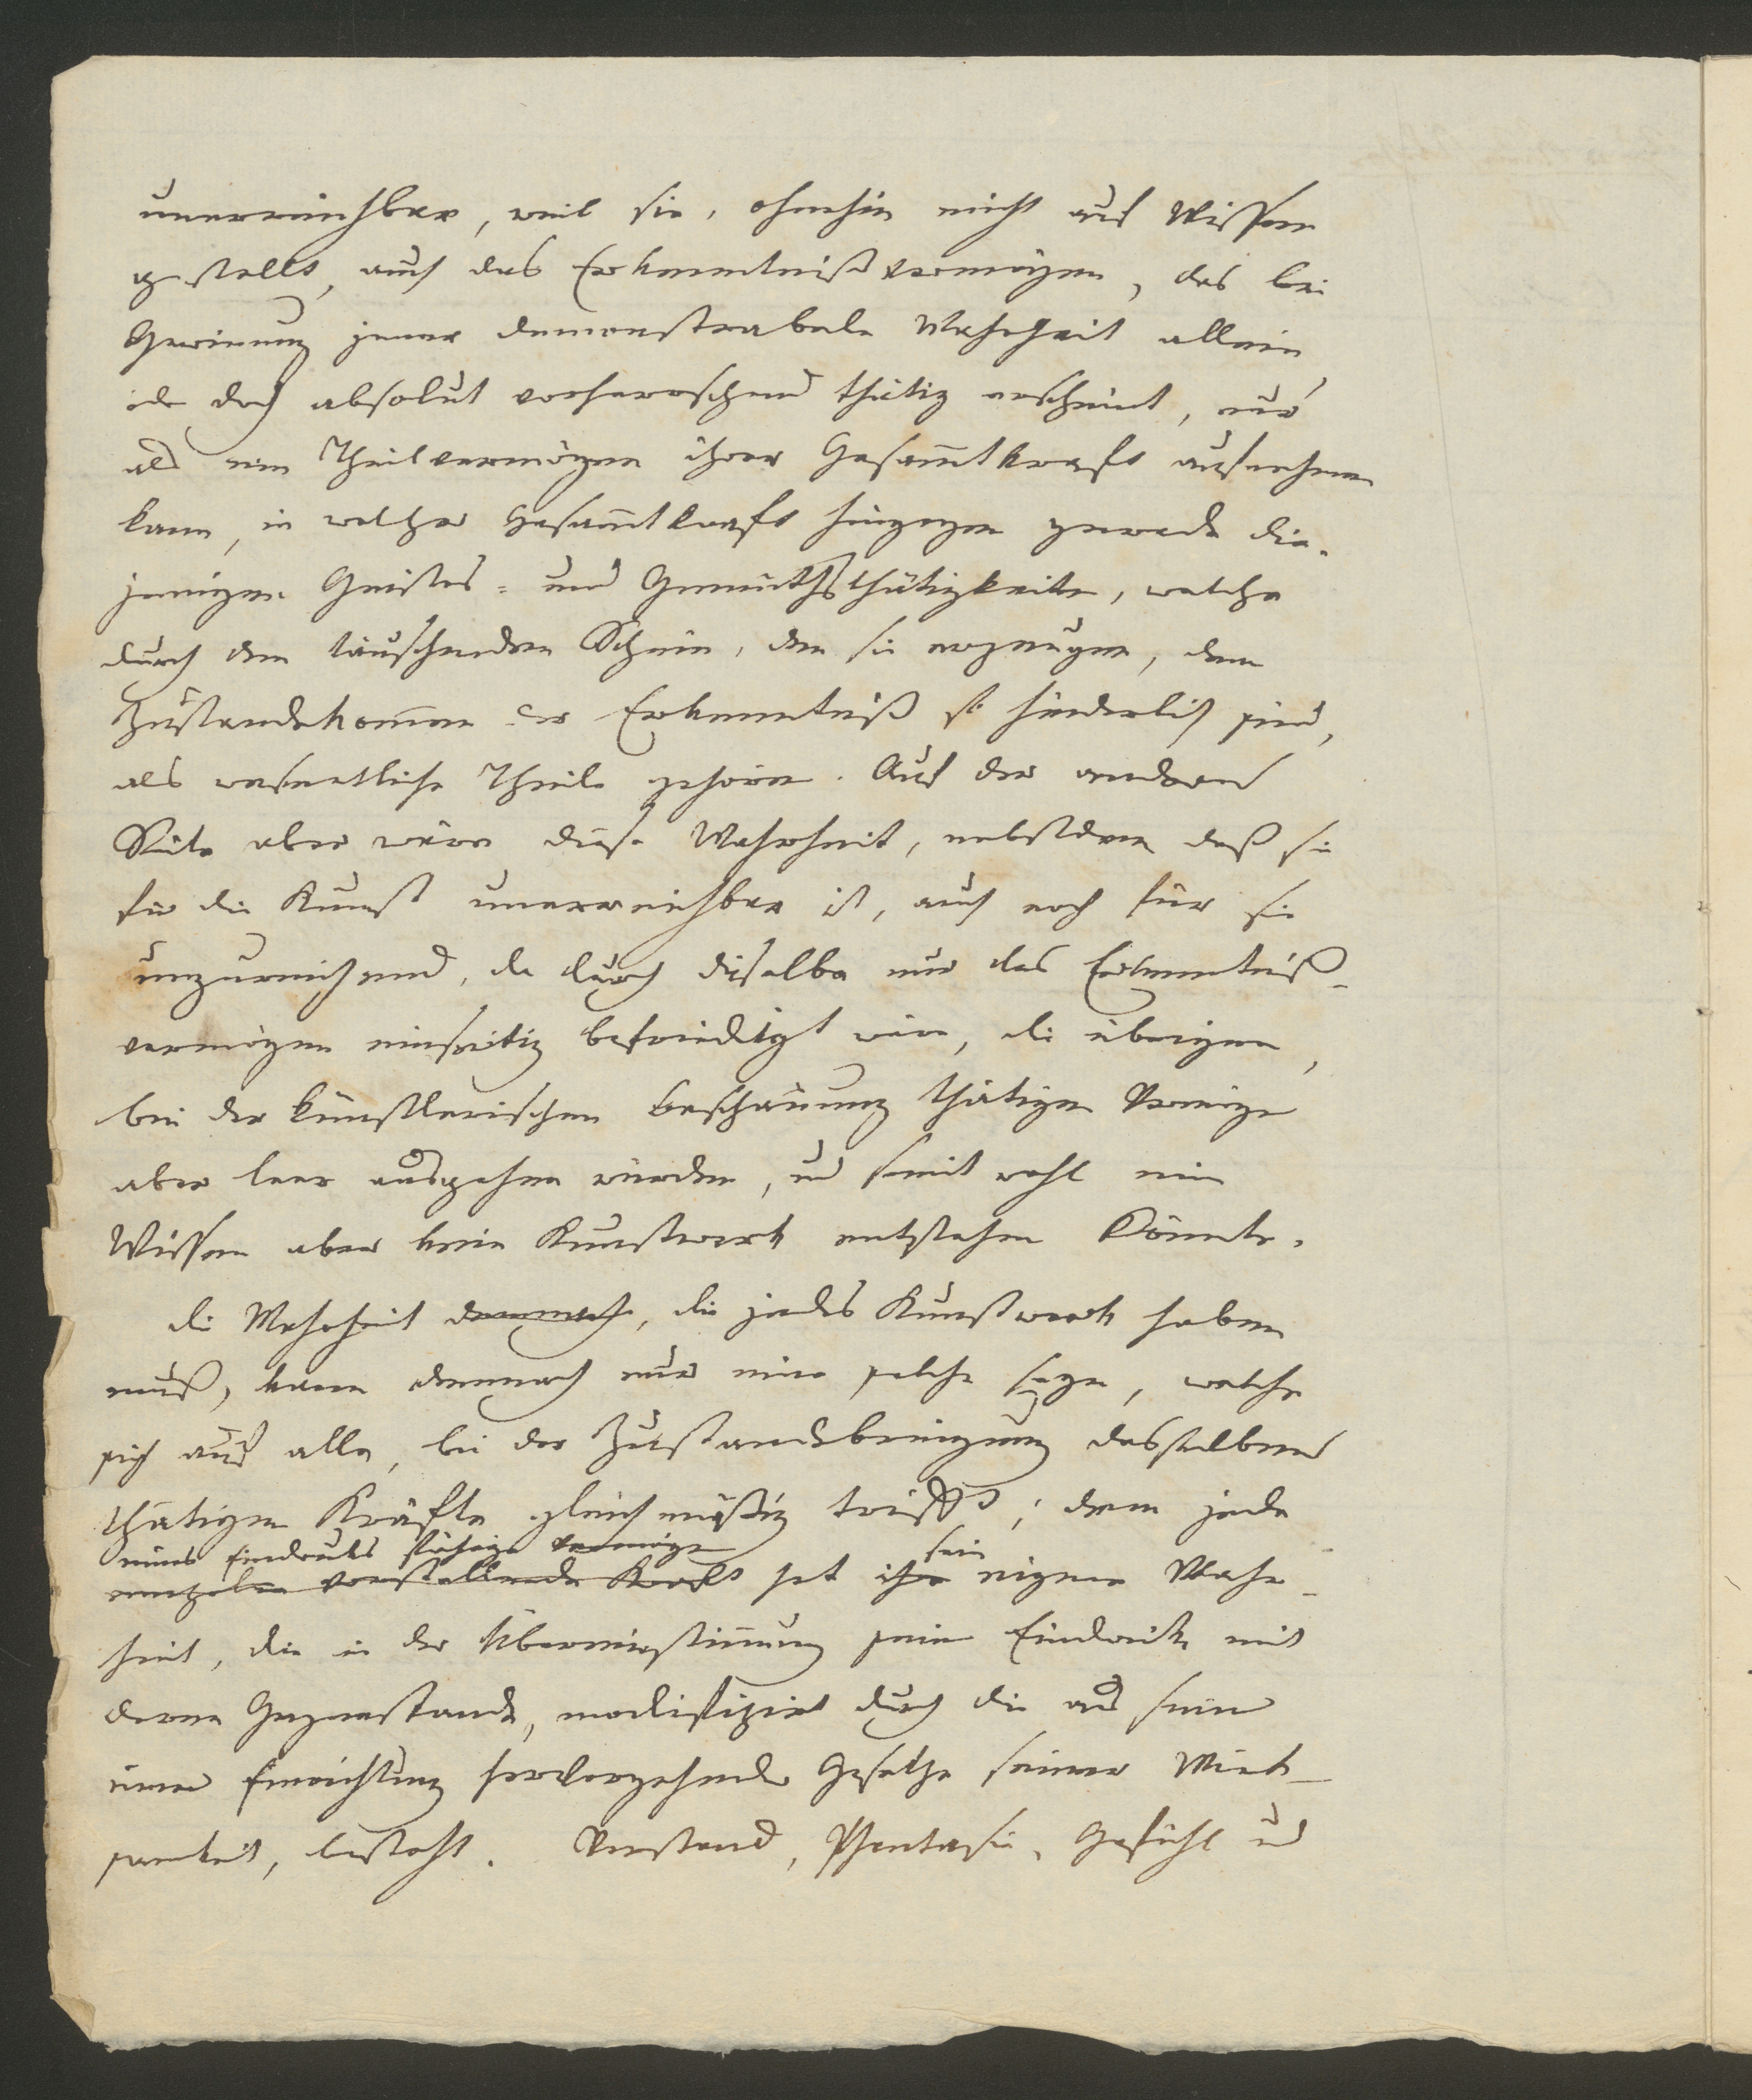 unerreichbar, weil sie, ohnehin nicht auf Wissen
gestellt, auch das Erkenntnißvermögen, das bei
Gewinnung jener demonstrabeln Wahrheit allein
oder doch absolut vorherrschend thätig erscheint, nur
als ein Theilvermögen ihrer Gesam̅tkraft aufnehmen
kann, in welcher Gesam̅tkraft hingegen gerade die-
jenigen Geistes- und Gemüthsthätigkeiten, welche
durch den täuschenden Schein, den sie erzeugen, dem
Zustandekom̅en der Erkenntniß so hinderlich sind,
als wesentliche Theile gehören. Auf der andern
Seite aber wäre diese Wahrheit, nebstdem daß sie
für die Kunst unerreichbar ist, auch noch für sie
unzureichend, da durch dieselbe nur das Erkenntniß-
vermögen einseitig befriedigt wäre, die übrigen,
bei der künstlerischen Beschauung thätigen Vermögen
aber leer ausgehen würden, und somit wohl ein
Wissen aber kein Kunstwerk entstehen könnte.
Die Wahrheit demnach, die jedes Kunstwerk haben
muß, kann demnach nur eine solche seyn, welche
sich auf alle, bei der Zustandebringung desselben
thätigen Kräfte gleichmäßig trifft; denn jede
eines Eindruks fähige Vermögen
einzelne vorstellende Kraft hat ihre sein eigene Wahr-
heit, die in der Übereinstim̅ung seiner Eindrücke mit
deren Gegenstande, modifizirt durch die aus seiner
innern Einrichtung hervorgehenden Gesetze seiner Wirk-
samkeit, besteht. Verstand, Phantasie, Gefühl und